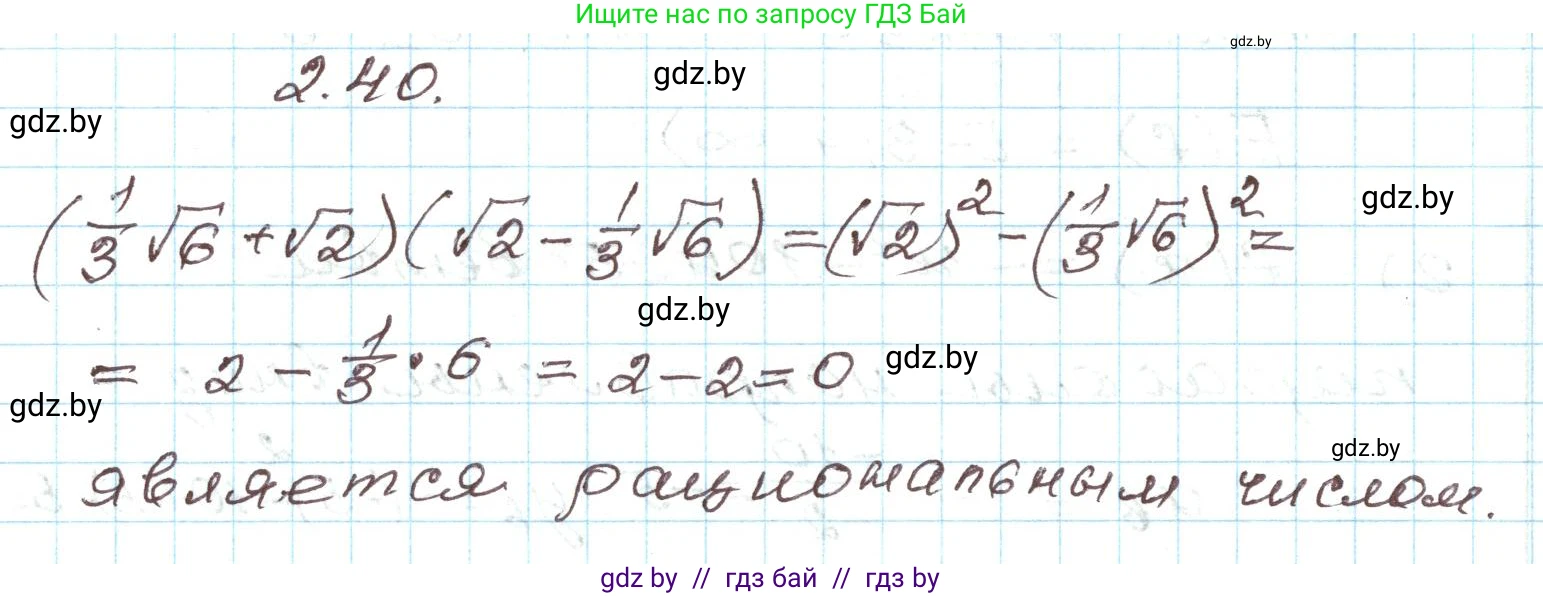 Ищите нас по запросу ГДЗ Бай
gdz.by
2.40.
gdz.by
gdz.by
(1/3 √6 + √2)(√2 - 1/3 √6) = (√2)² - (1/3 √6)² =
gdz.by
gdz.by
= 2 - 1/3 · 6 = 2 - 2 = 0
gdz.by
gdz.by
gdz.by
является рациональным числом.
gdz by // гдз бай // гдз by